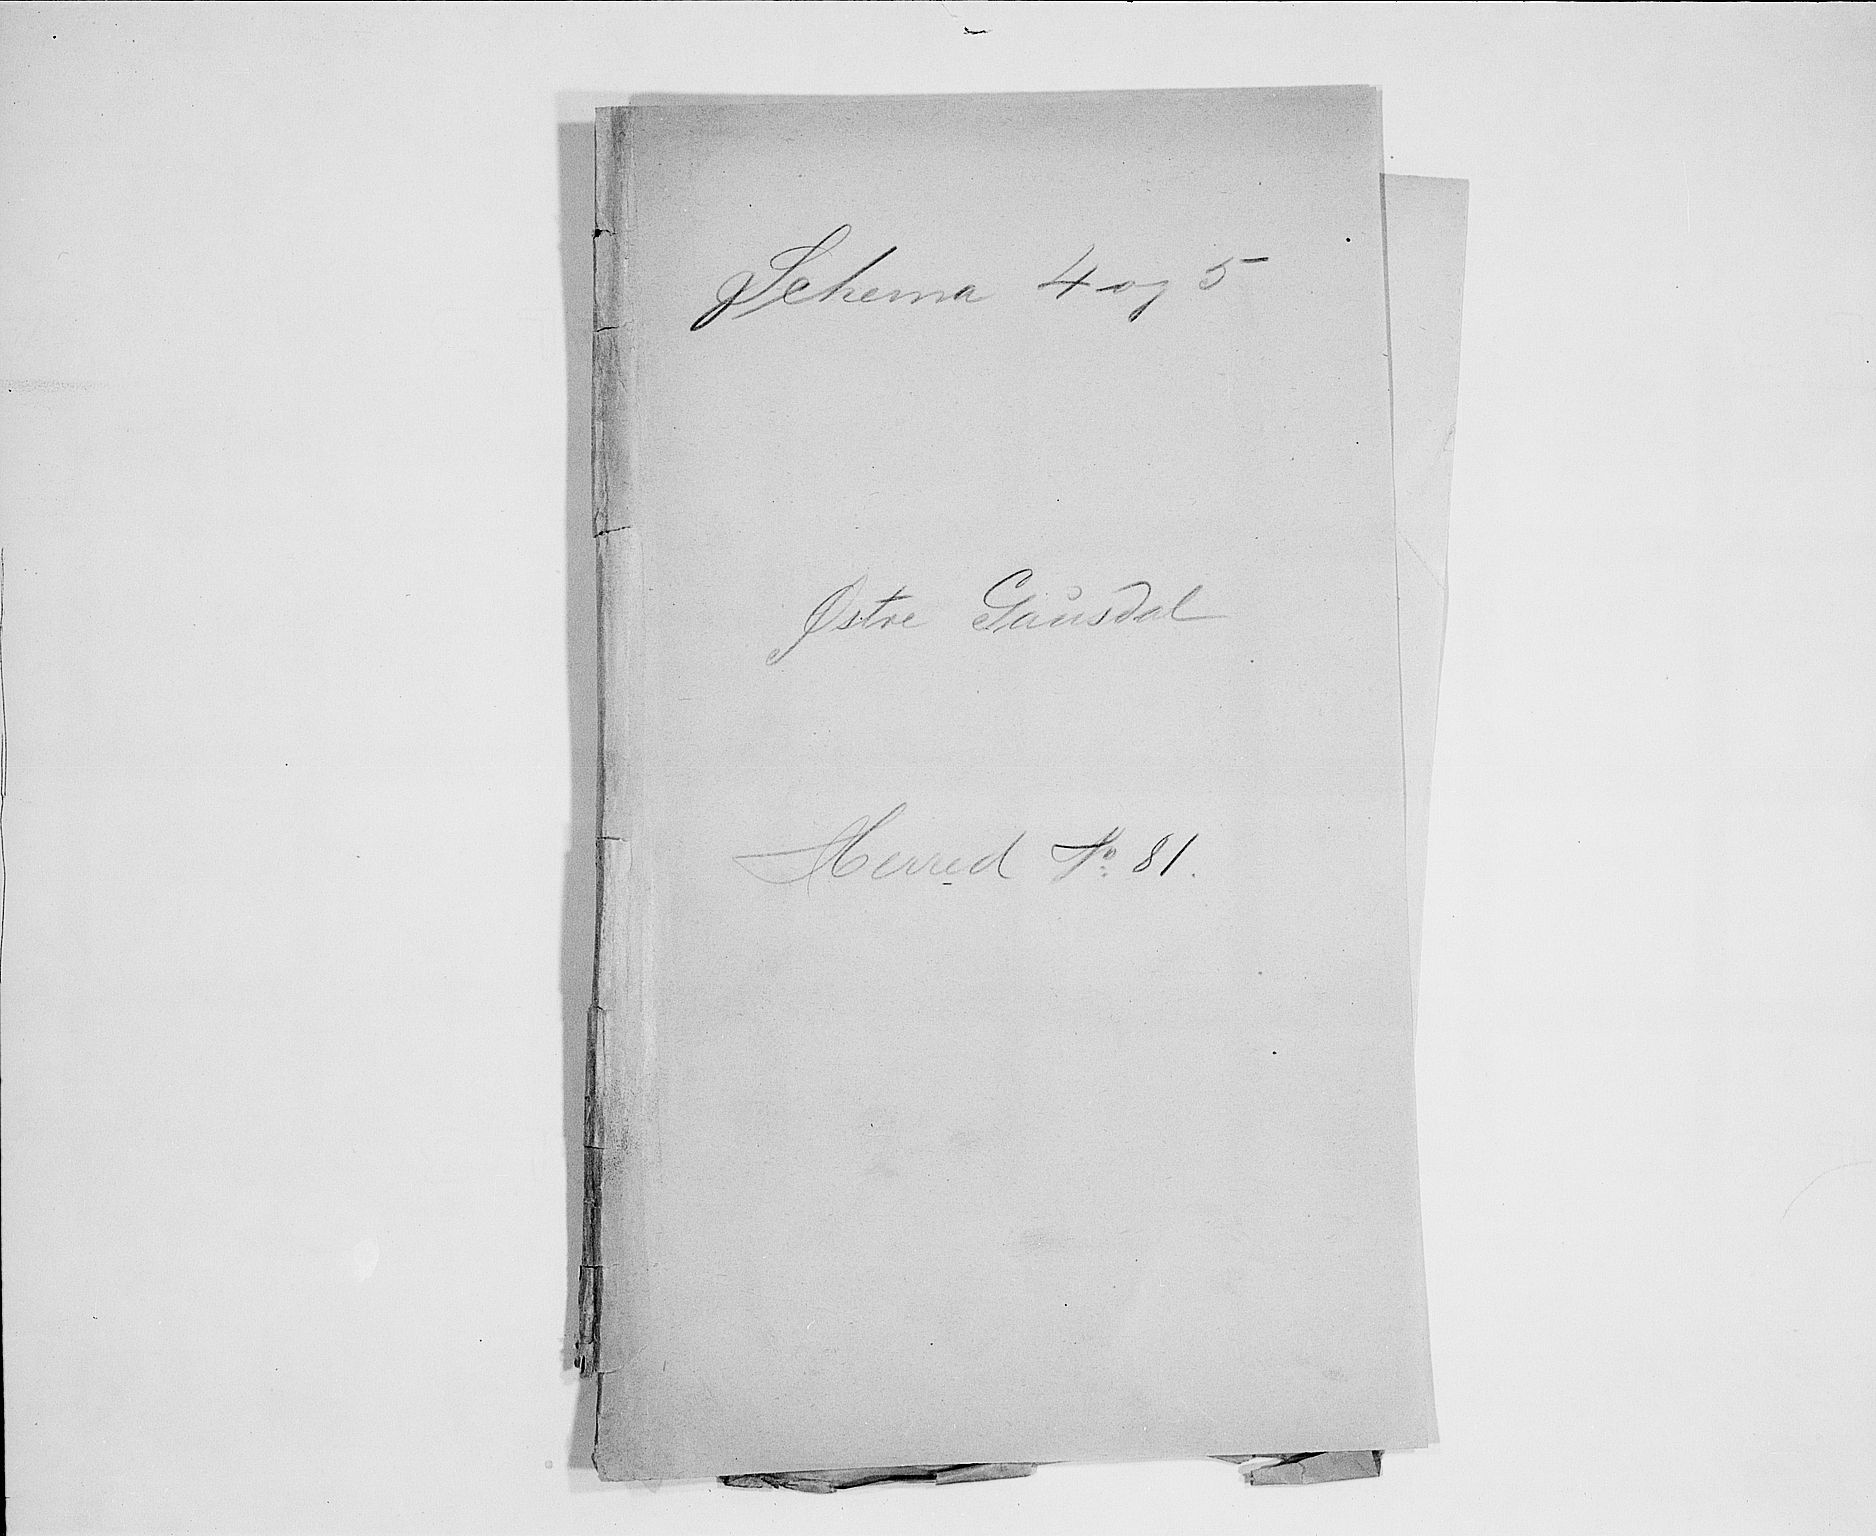 Schema 4 og 5
Østre Gausdal
Herred No. 81.